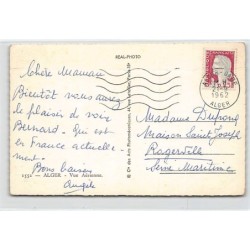 REAL-PHOTO
Chère Maman
Bientôt vous aurez
le plaisir de voir
Bernard. Qui est
en France actuelle-
ment.
Bons baisers
Angèle
ALGER - Vue Aérienne.
1962
ALGER
Madame Dupong
Maison Saint Joseph
Rogerville
Seine Maritime